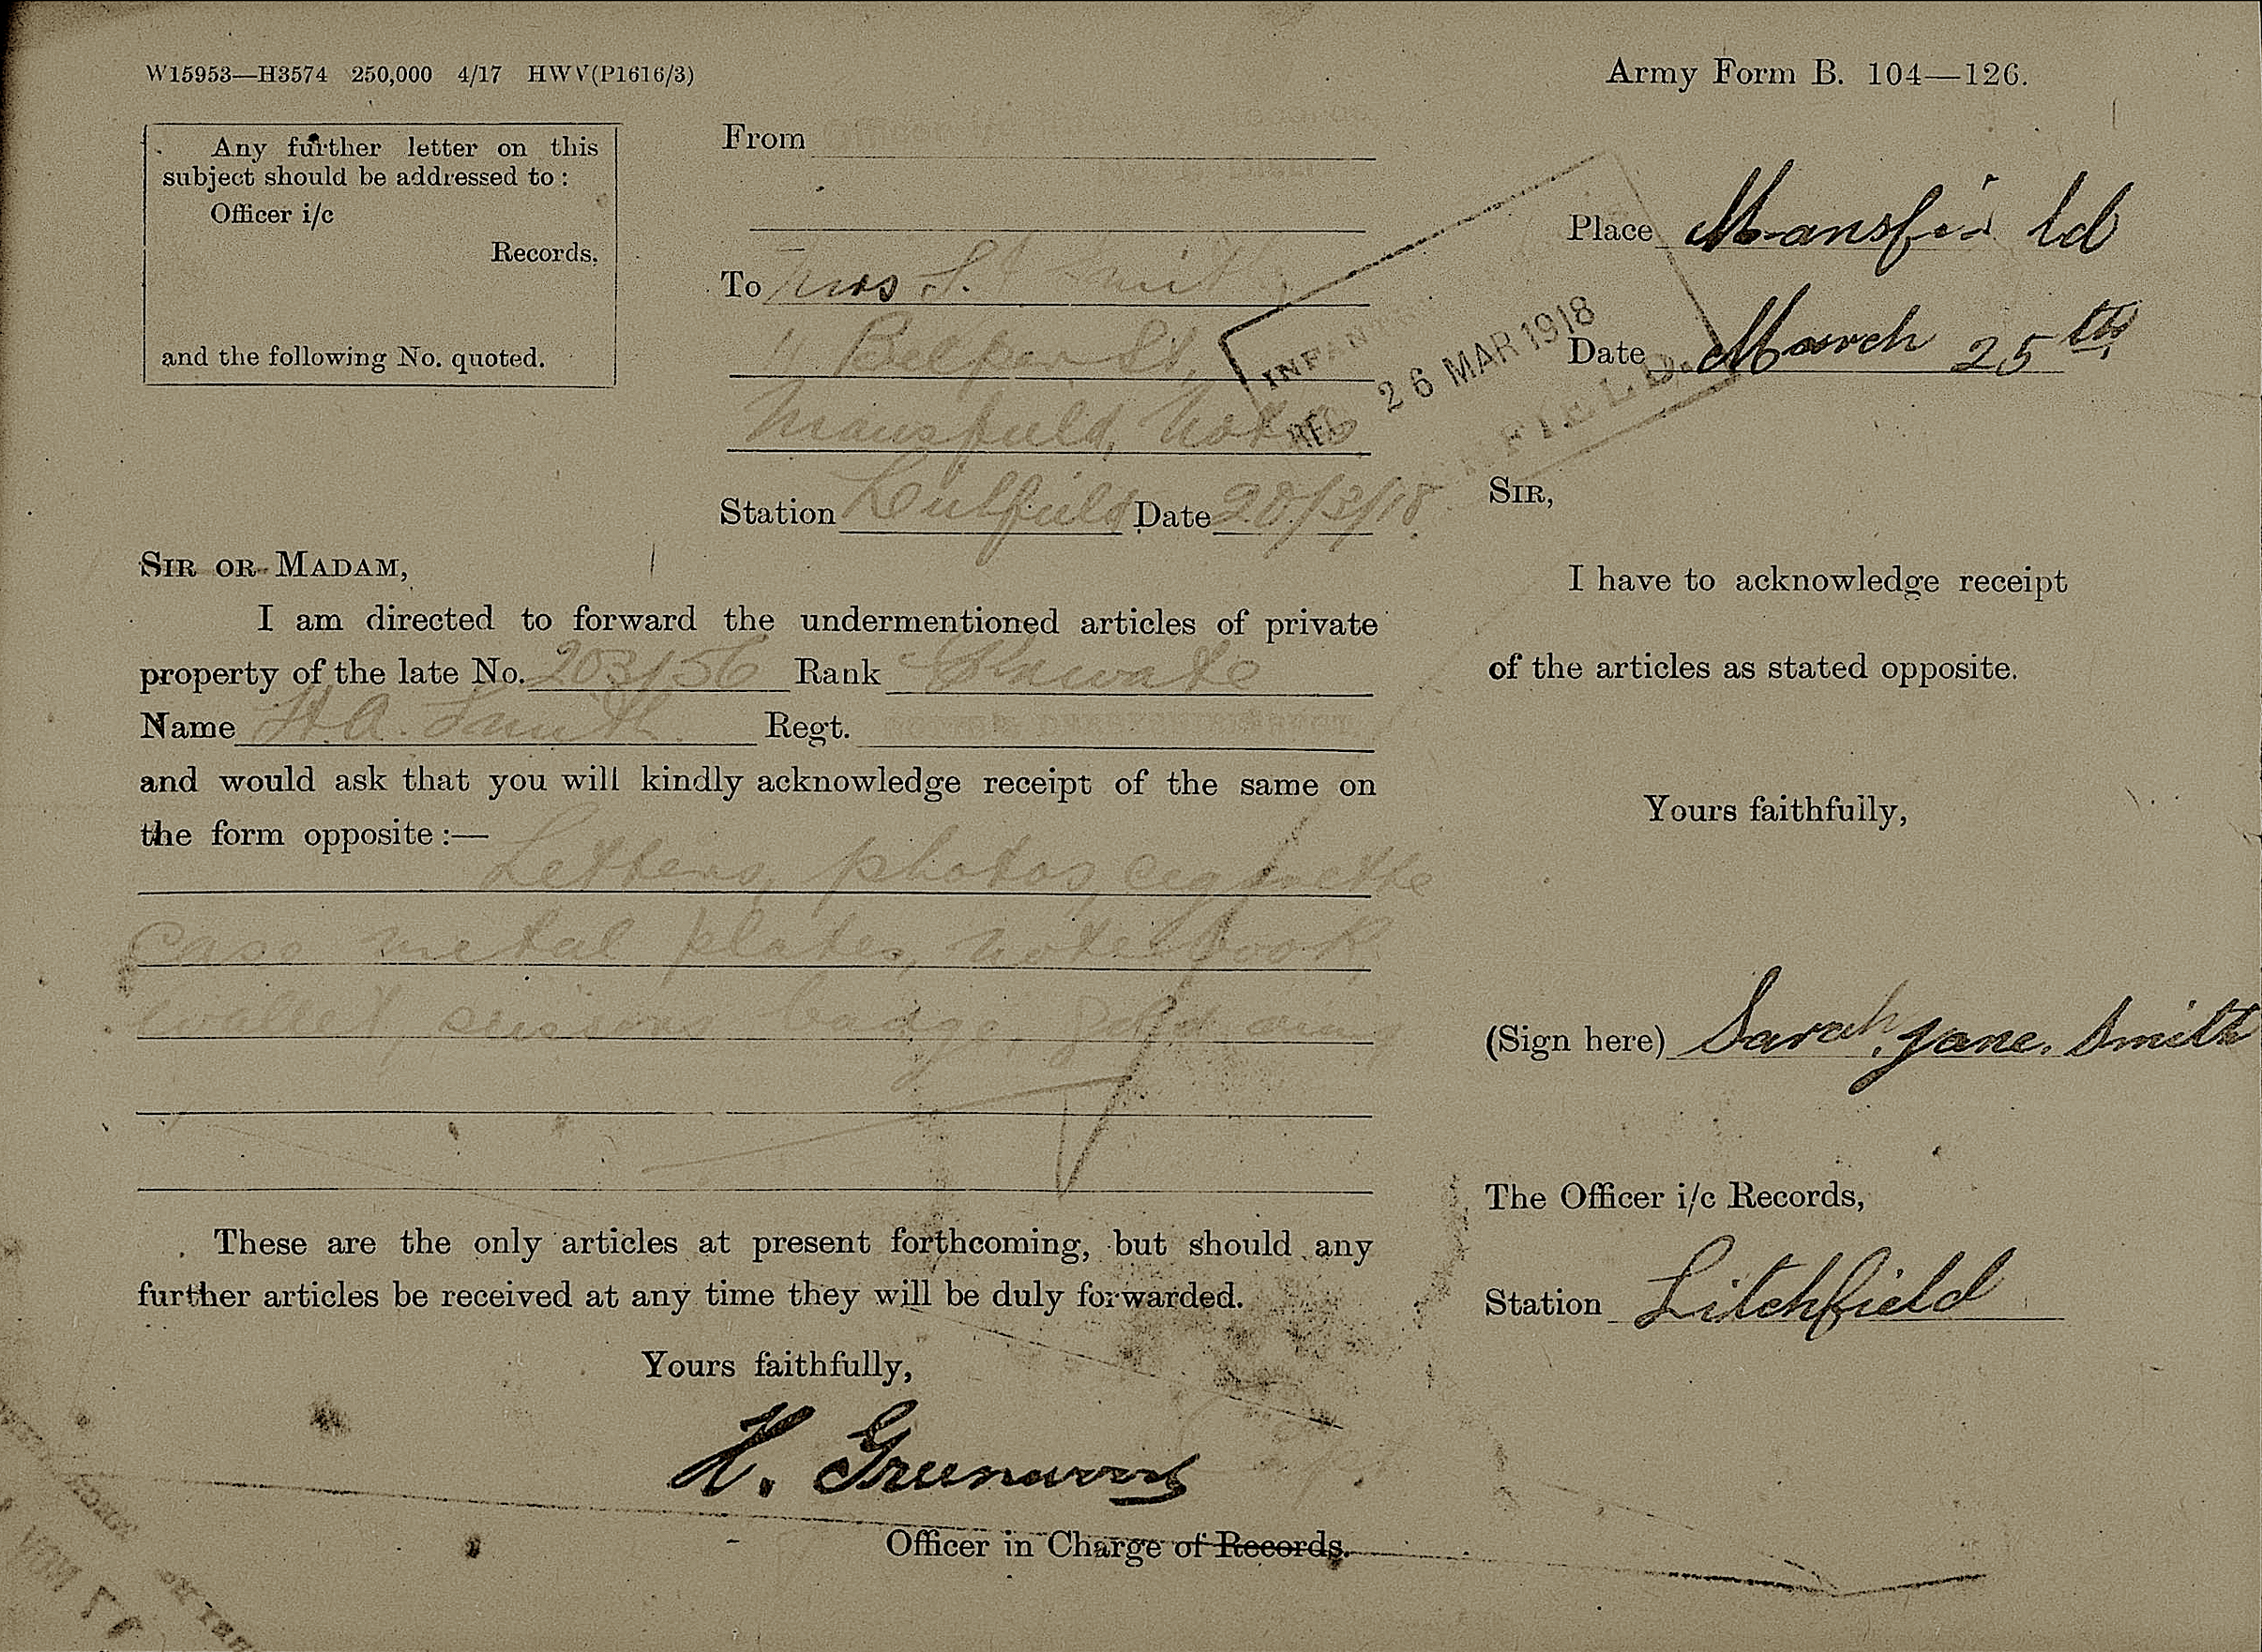 W15953—H3574 250,000 4/17 HWV(P1616/3)
Army Form B. 104—126.
Any further letter on this
subject should be addressed to:
Officer i/c
Records.
and the following No. quoted.
From
To Mrs S. A Smith
11 Belper St,
Mansfield, Notts
Station Lichfield Date 20/3/18.
SIR OR MADAM,
I am directed to forward the undermentioned articles of private
property of the late No. 203156 Rank Private
Name H. A. Smith Regt.
and would ask that you will kindly acknowledge receipt of the same on
the form opposite:—
Letters, photos, cigarette
case metal plates, note book
wallet, scissors badge
These are the only articles at present forthcoming, but should any
further articles be received at any time they will be duly forwarded.
Yours faithfully,
H. Greenwood
Officer in Charge of Records.
INFANTRY
REC 26 MAR 1918
Place Mansfield
Date March 25th
SIR,
I have to acknowledge receipt
of the articles as stated opposite.
Yours faithfully,
(Sign here) Sarah Jane. Smith
The Officer i/c Records,
Station Litchfield